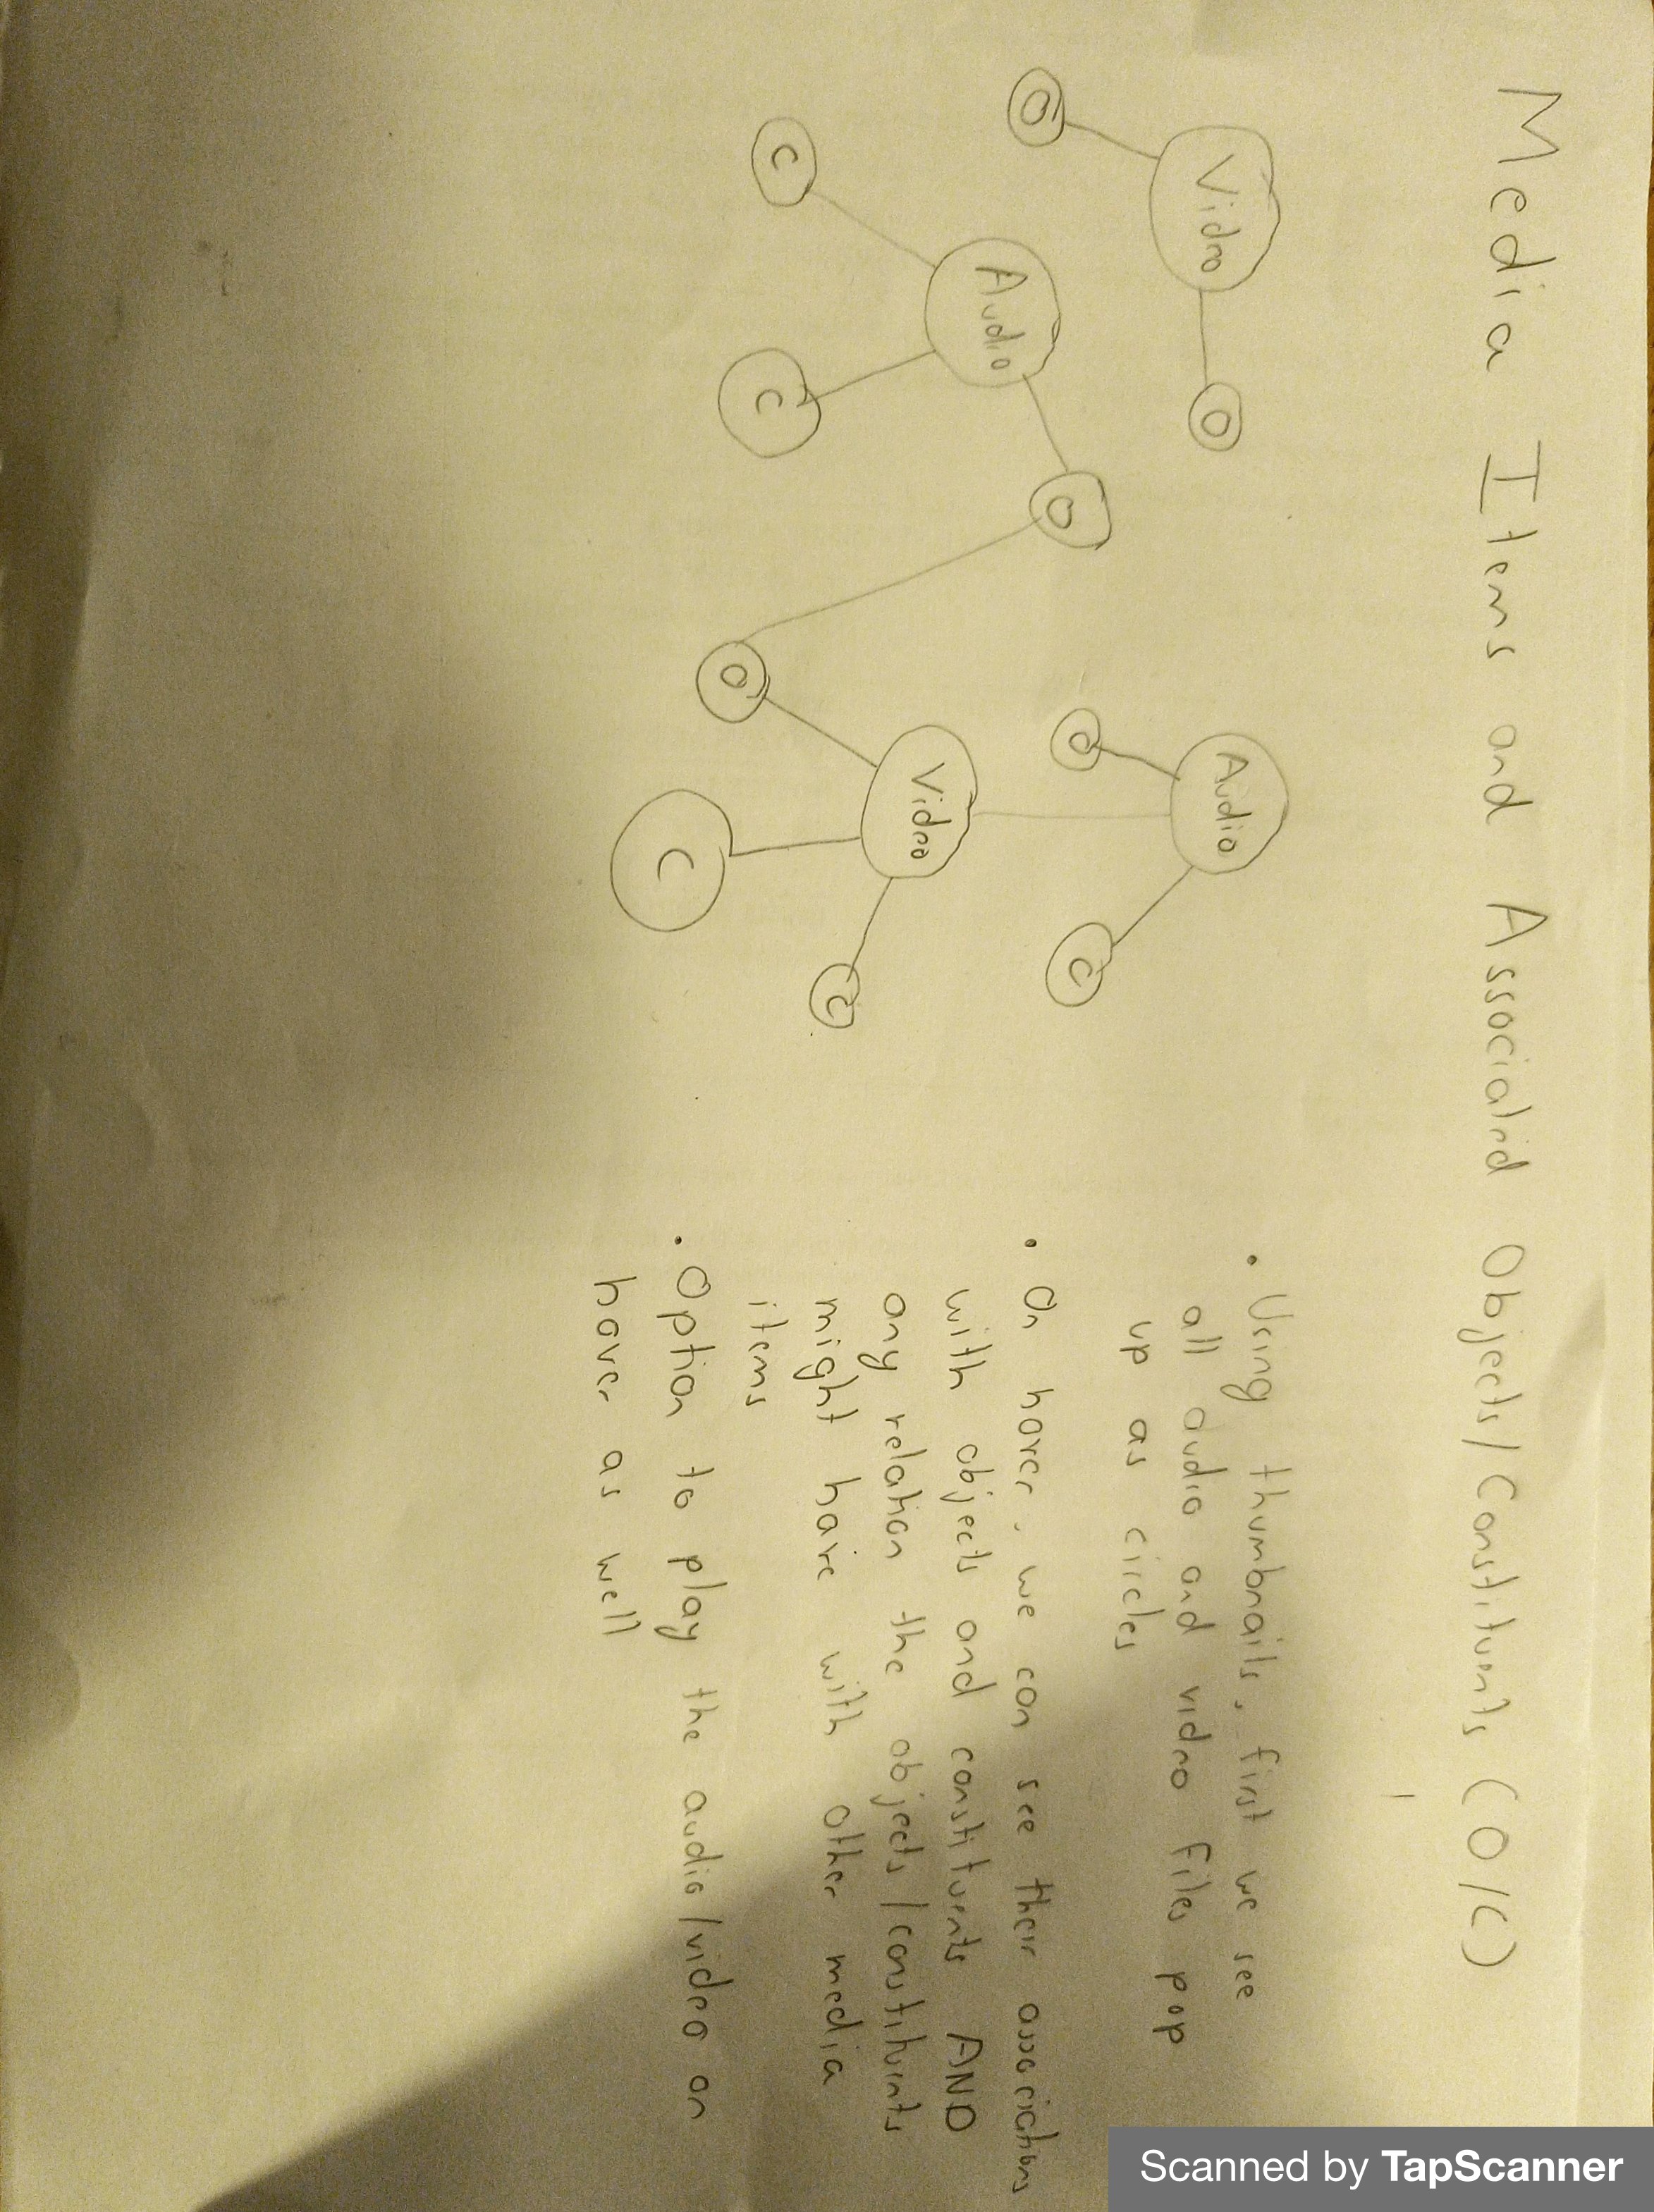 Media Items and Associated Objects/Constituents (O/C)
Video
O
O
Audio
O
C
C
Audio
O
C
Video
O
C
C
• Using thumbnails, first we see
all audio and video files pop
up as circles
• On hover, we can see their associations
with objects and constituents AND
any relation the objects/constituents
might have with other media
items
• Option to play the audio/video on
hover as well
Scanned by TapScanner